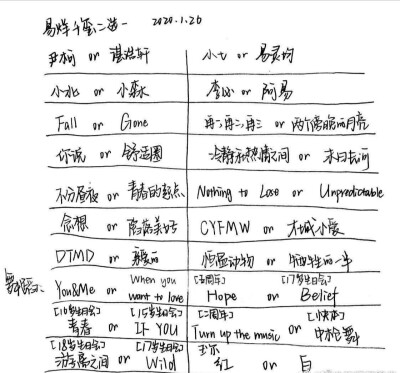 易烊千玺二选一 2020.1.26
尹柯 or 谌浩轩 小七 or 易灵均
小北 or 小森 李必 or 阿易
Fall or Gone 再三再二再三 or 两个离痕而月亮
你说 or 舒适圈 冷静和热情之间 or 末日长河
不分昼夜 or 青春的起点 Nothing to Lose or Unpredictable
念想 or 陷落美好 CYFMW or 木城小爱
DTMD or 亲爱的 恒温动物 or 的一年
舞蹈: You&Me or When you want to love [五周年] Hope or [17岁生日会] Belief
[16岁生日会] 青春 or [15岁生日会] If YOU [二周年] Turn up the music or [快本] 中枪舞
[18岁生日会] 游离之间 or [17岁生日会] Wild 玉尔 红 or 白